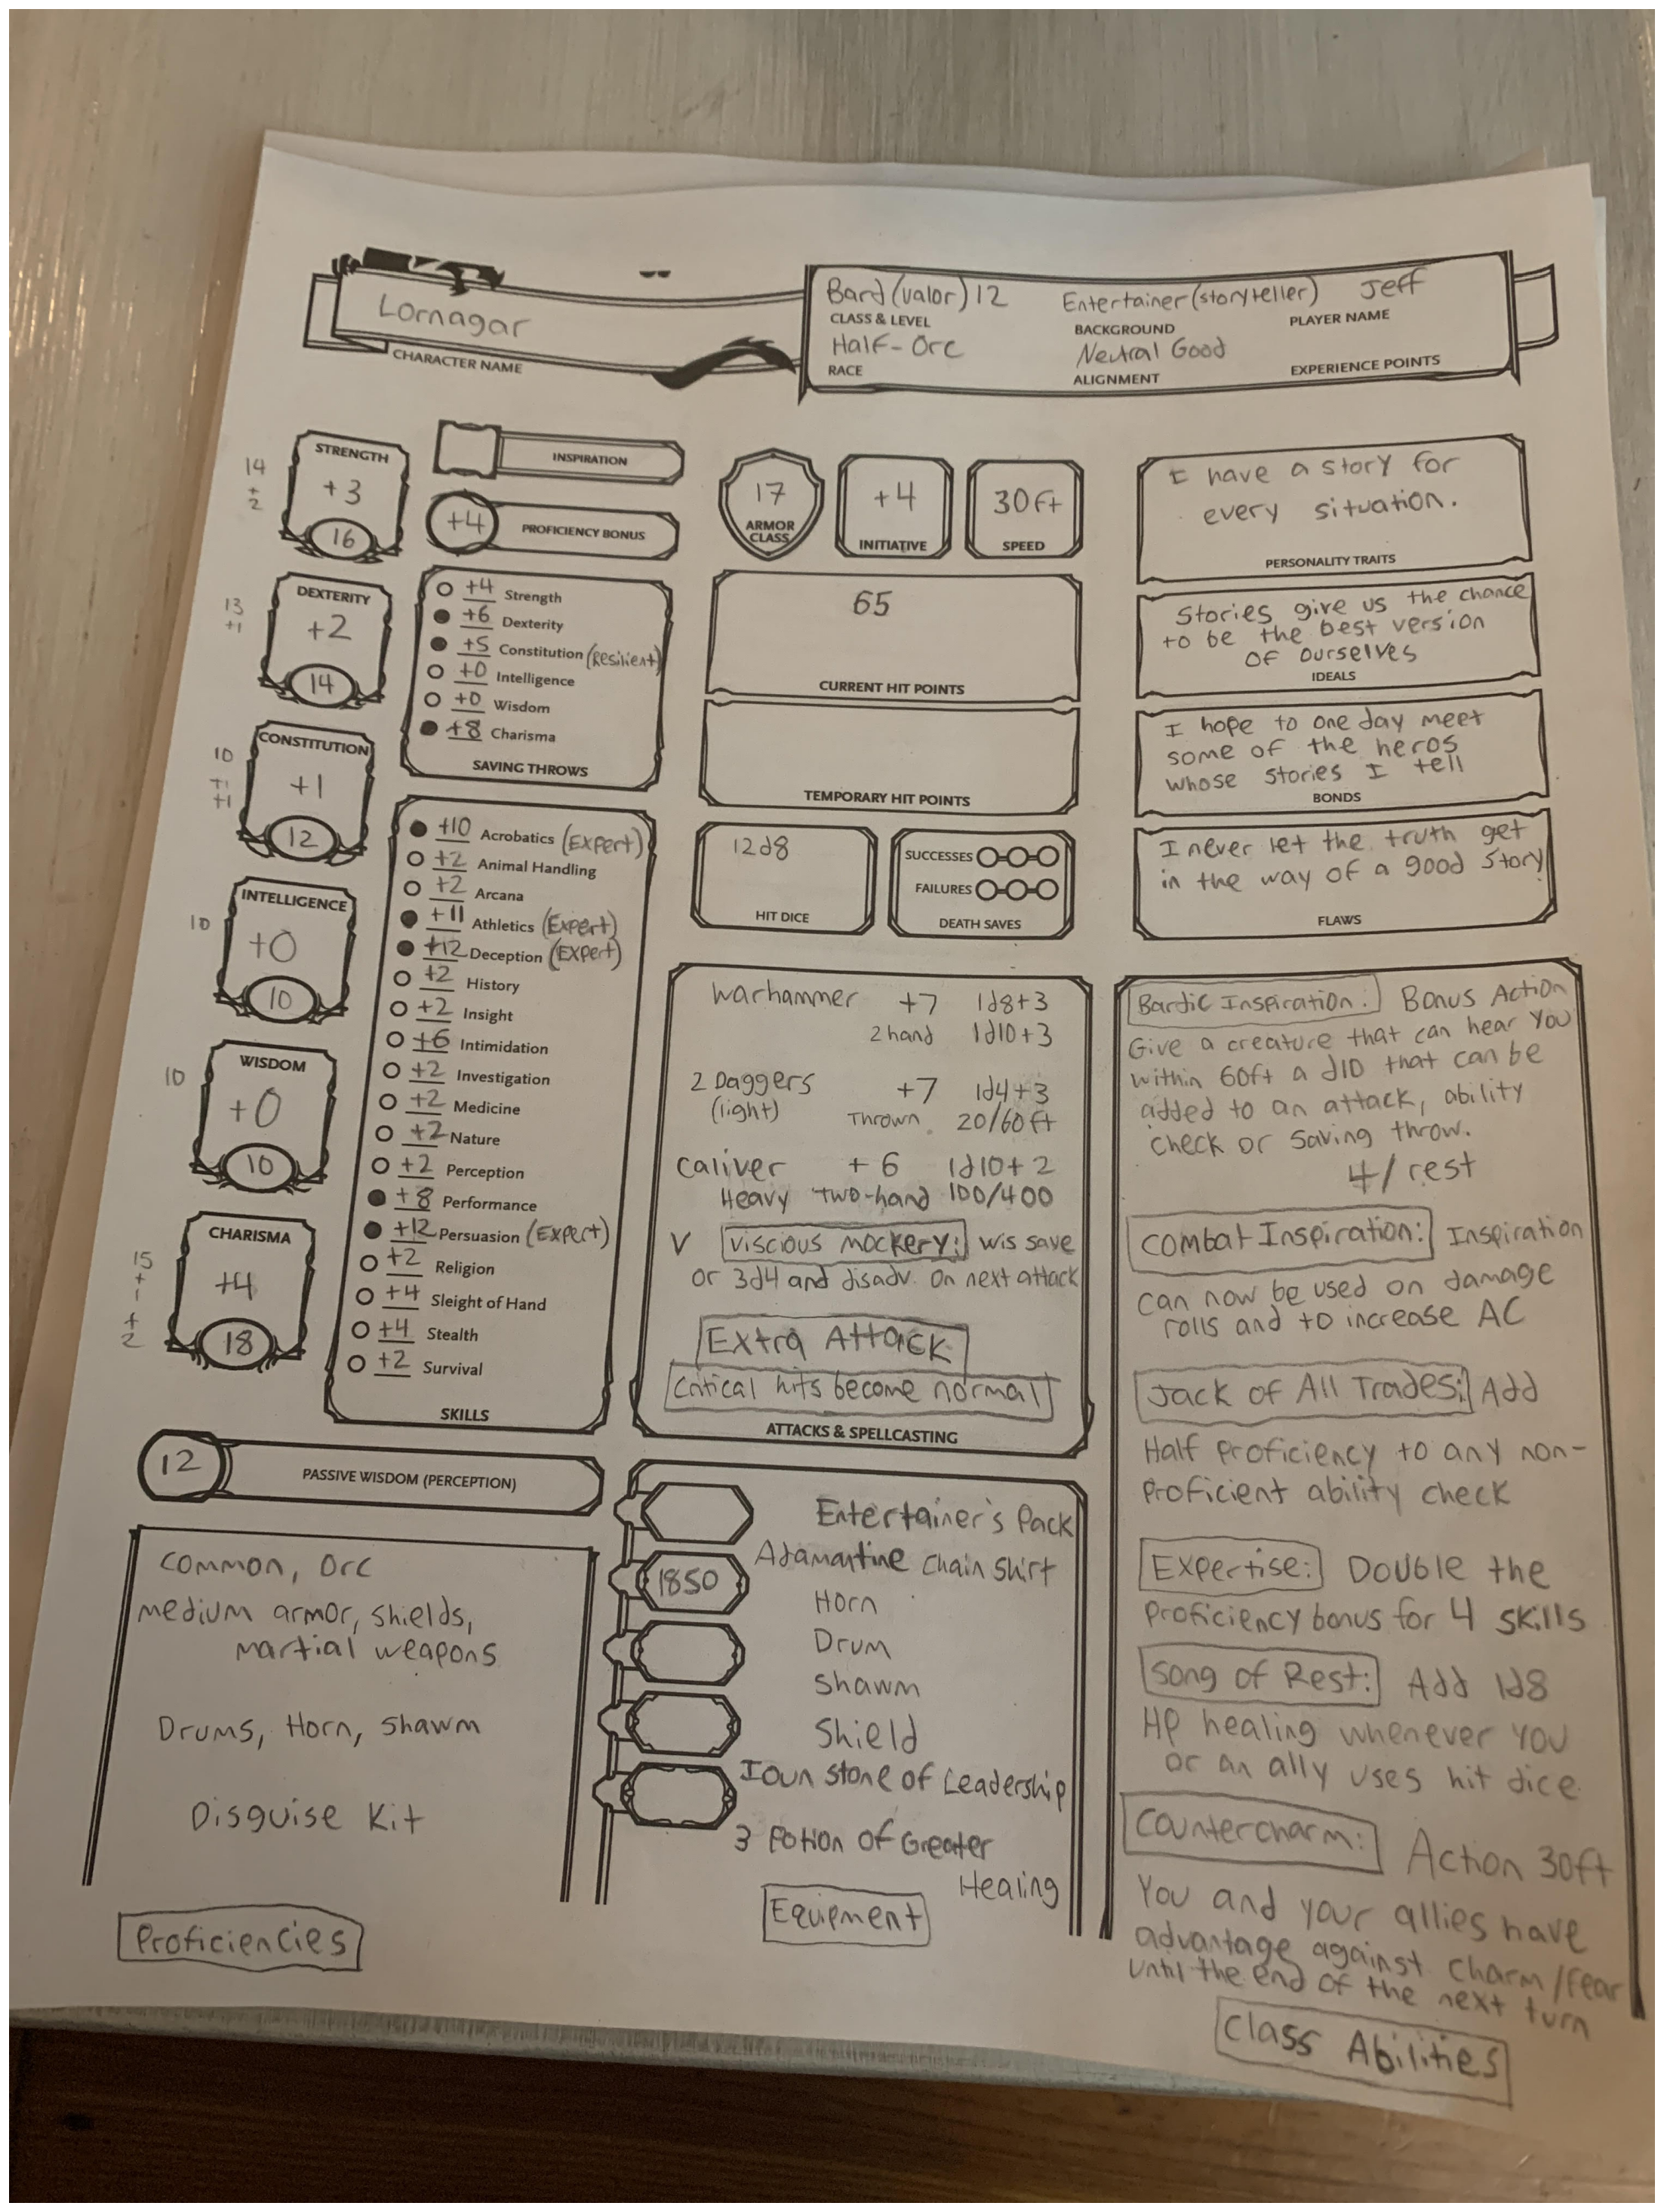 Lornagar
CHARACTER NAME
Bard (valor) 12
CLASS & LEVEL
Entertainer (storyteller)
BACKGROUND
Jeff
PLAYER NAME
Half-Orc
RACE
Neutral Good
ALIGNMENT
EXPERIENCE POINTS
14
+
2
STRENGTH
+3
16
13
+1
DEXTERITY
+2
14
10
+1
+1
CONSTITUTION
+1
12
10
INTELLIGENCE
+0
10
10
WISDOM
+0
10
15
+
1
+
2
CHARISMA
+4
18
INSPIRATION
+4 PROFICIENCY BONUS
+4 Strength
+6 Dexterity
+5 Constitution (Resilient)
+0 Intelligence
+0 Wisdom
+8 Charisma
SAVING THROWS
+10 Acrobatics (Expert)
+2 Animal Handling
+2 Arcana
+11 Athletics (Expert)
+12 Deception (Expert)
+2 History
+2 Insight
+6 Intimidation
+2 Investigation
+2 Medicine
+2 Nature
+2 Perception
+8 Performance
+12 Persuasion (Expert)
+2 Religion
+4 Sleight of Hand
+4 Stealth
+2 Survival
SKILLS
12 PASSIVE WISDOM (PERCEPTION)
Common, Orc
medium armor, shields,
martial weapons
Drums, Horn, Shawm
Disguise Kit
Proficiencies
17
ARMOR
CLASS
+4
INITIATIVE
30ft
SPEED
65
CURRENT HIT POINTS
TEMPORARY HIT POINTS
12d8
HIT DICE
SUCCESSES
FAILURES
DEATH SAVES
Warhammer +7 1d8+3
2 hand 1d10+3
2 Daggers +7 1d4+3
(light) Thrown 20/60ft
Caliver +6 1d10+2
Heavy two-hand 100/400
V Viscious mockery: wis save
or 3d4 and disadv. on next attack
Extra Attack
Critical hits become normal
ATTACKS & SPELLCASTING
1850
Entertainer's Pack
Adamantine chain shirt
Horn
Drum
Shawm
Shield
Ioun stone of Leadership
3 Potion of Greater
Healing
Equipment
I have a story for
every situation.
PERSONALITY TRAITS
Stories give us the chance
to be the best version
of ourselves
IDEALS
I hope to one day meet
some of the heros
whose stories I tell
BONDS
I never let the truth get
in the way of a good story
FLAWS
Bardic Inspiration: Bonus Action
Give a creature that can hear you
within 60ft a d10 that can be
added to an attack, ability
check or saving throw.
4/rest
Combat Inspiration: Inspiration
can now be used on damage
rolls and to increase AC
Jack of All Trades: Add
Half proficiency to any non-
proficient ability check
Expertise: Double the
proficiency bonus for 4 skills
Song of Rest: Add 1d8
HP healing whenever you
or an ally uses hit dice.
Countercharm: Action 30ft
You and your allies have
advantage against charm/fear
until the end of the next turn
Class Abilities